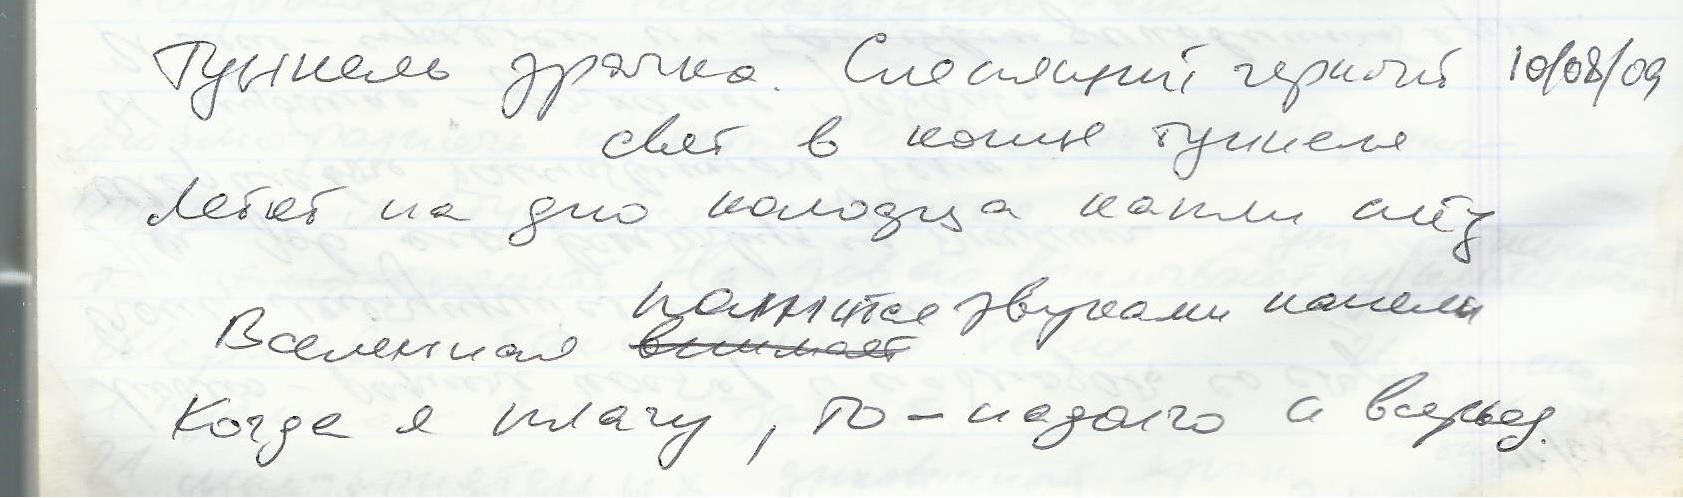 Туннель зрачка. Слепящий черный 10/08/09
свет в конце туннеля
Летят на дно колодца капли
полнится звуками капели
Вселенная внимает
Когда я плачу, то – надолго и всерьез.